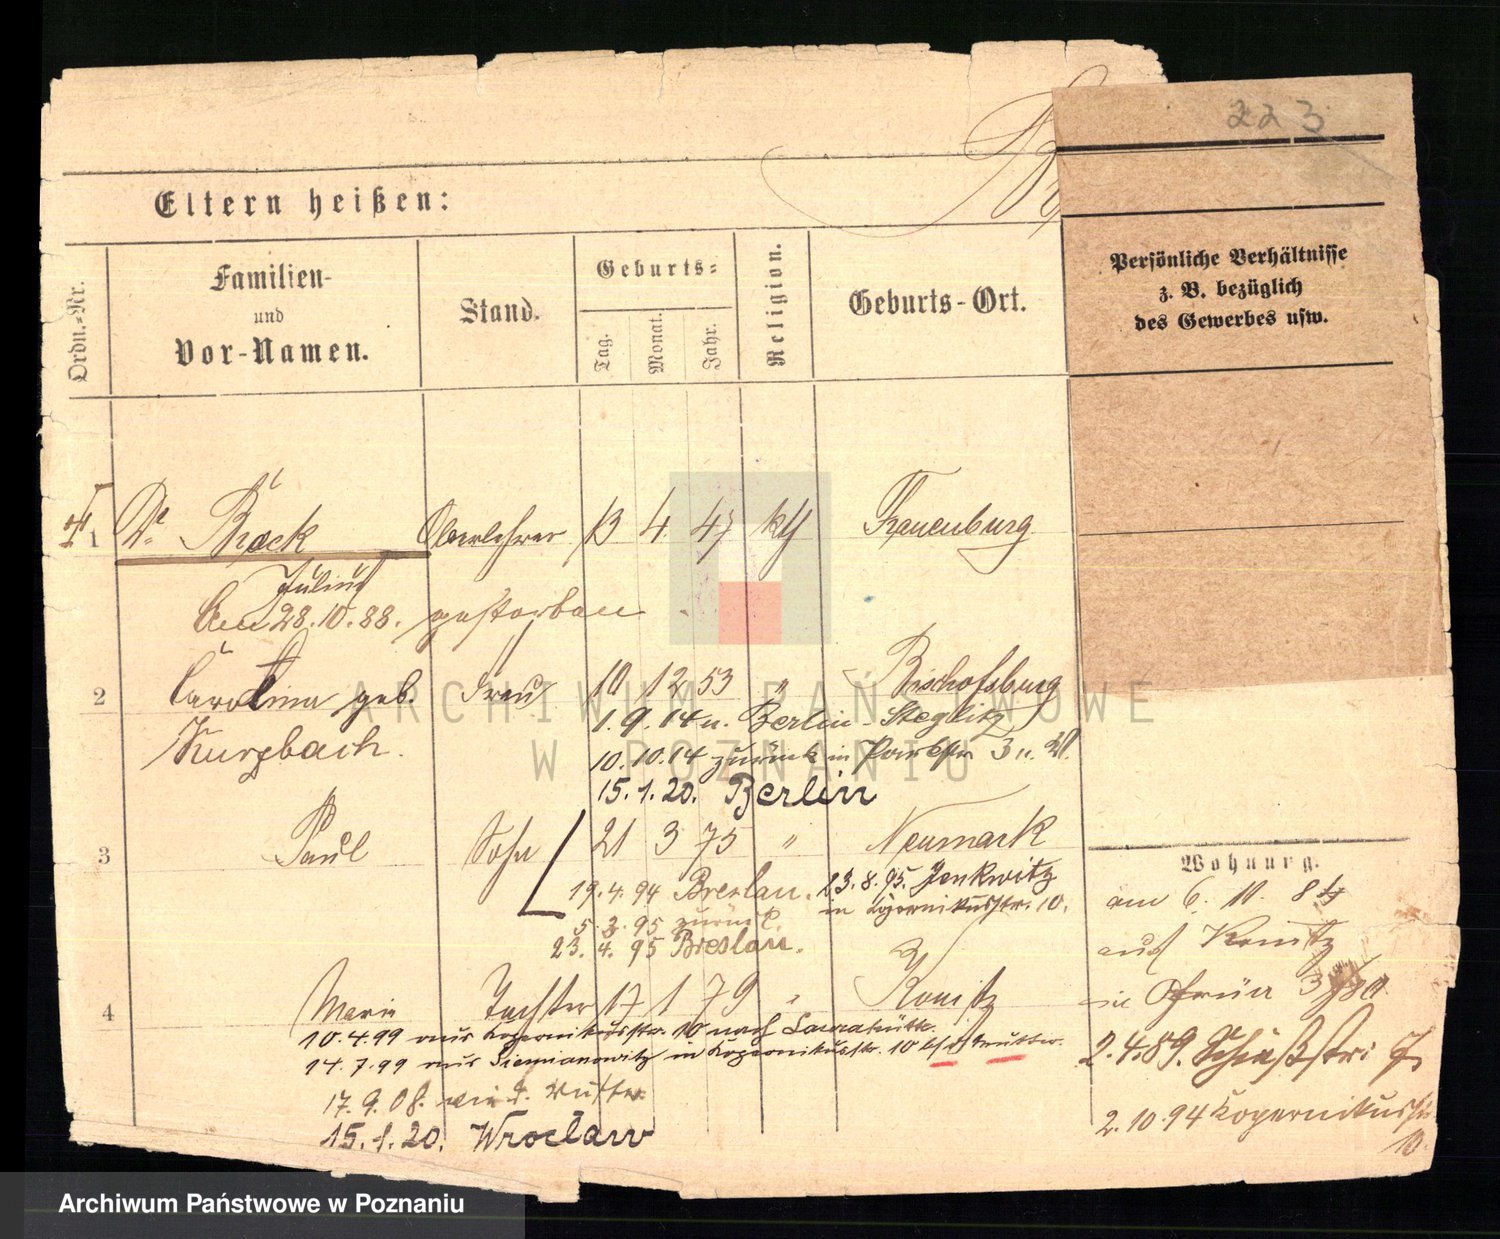 223
Eltern heißen:
Ordn.-Nr.
Familien-
und
Vor-Namen.
Stand.
Geburts-
Tag.
Monat.
Jahr.
Religion.
Geburts-Ort.
Persönliche Verhältnisse
z. B. bezüglich
des Gewerbes usw.
1 Dr. Brock Oberlehrer 13 4 47 kth Frauenburg
Julius
Am 28.10.88. gestorben
2 Carolina geb. Frau 10 12 53 " Bischofsburg
Kurzbach.
1.9.14 n. Berlin-Steglitz
10.10.14 zurück in Parkstr. 3
15.1.20. Berlin
3 Paul Sohn 21 3 75 " Neumark
19.4.94 Breslau.
23.8.95. Jenkwitz
in Kopernikusstr. 10.
5.3.95 zurück
23.4.95 Breslau.
Wohnung.
am 6. 10. 84
aus Konitz
in
2.4.89. Schießstr. 7
2.10.94 Kopernikusstr.
10
4 Marie Tochter 17 1 79 " Konitz
10.4.99 aus Kopernikusstr. 10 nach Laurahütte.
14.7.99 aus Siemianowitz in Kopernikusstr. 10 bei d. Mutter.
17.9.08. wie d. Mutter
15.1.20. Wrocław
ARCHIWUM PAŃSTWOWE
W POZNANIU
Archiwum Państwowe w Poznaniu